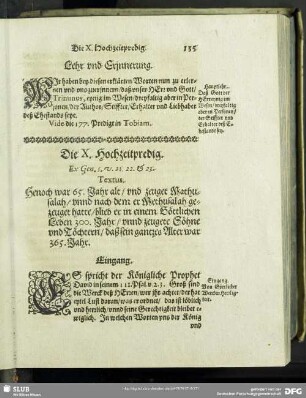 Die X. Hochzeitpredig.
135
Lehr vnd Erjnnerung.
WIr haben bey diesen erklärten Worten nun zu erler-
nen vnd vns zuerinnern / daß vnser HErr vnd Gott /
Trinunus, eynig im Wesen / dreyfaltig aber in Per-
sonen der Author, Stiffter, Erhalter und Liebhaber
deß Ehestands seye.
Vide die 177. Predigt in Tobiam.
Hauptlehr.
Daß Gott der
HErr eynig im
Wesen / dreyfaltig
aber in Personen /
der Stiffter vnd
Erhalter deß E-
hestands sey.
Die X. Hochzeitpredig.
Ex Gen. 5. v. 21. 22. & 23.
Textus.
Henoch war 65. Jahr alt / vnd zeuget Mathu-
salah / vnnd nach dem er Methusalah ge-
zeuget hatte / blieb er in einem Göttlichen
Leben 300. Jahr / vnnd zeugete Söhne
vnd Töchtern / daß sein gantzes Alter war
365. Jahr.
Eingang.
ES spricht der Königliche Prophet
David in seinem 112. Psal. v. 2. 3. Groß sind
die Werck deß HErren / wer ihr achtet / der hat
eytel Lust daran / was er ordnet / das ist löblich
vnd herrlich / vnnd seine Gerechtigkeit bleibet e-
wiglich. In welchen Worten vns der König
vnd
Eingang.
Von
SLUB
Wir führen Wissen.
DFG